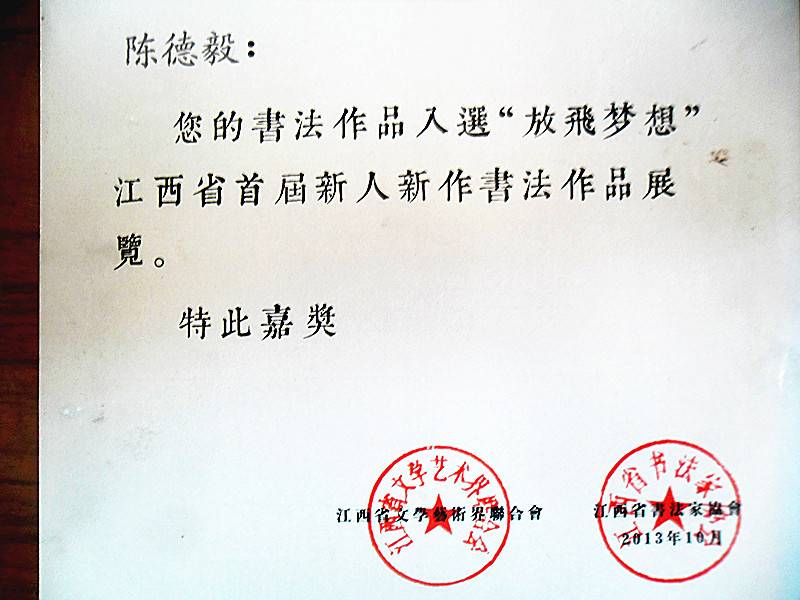 陈德毅：
您的書法作品入選“放飛梦想”
江西省首屆新人新作書法作品展
覽。
特此嘉奬
江西省文学艺术界联合会
江西省书法家协会
江西省文學藝術界聯合會
江西省書法家協會
2013年10月